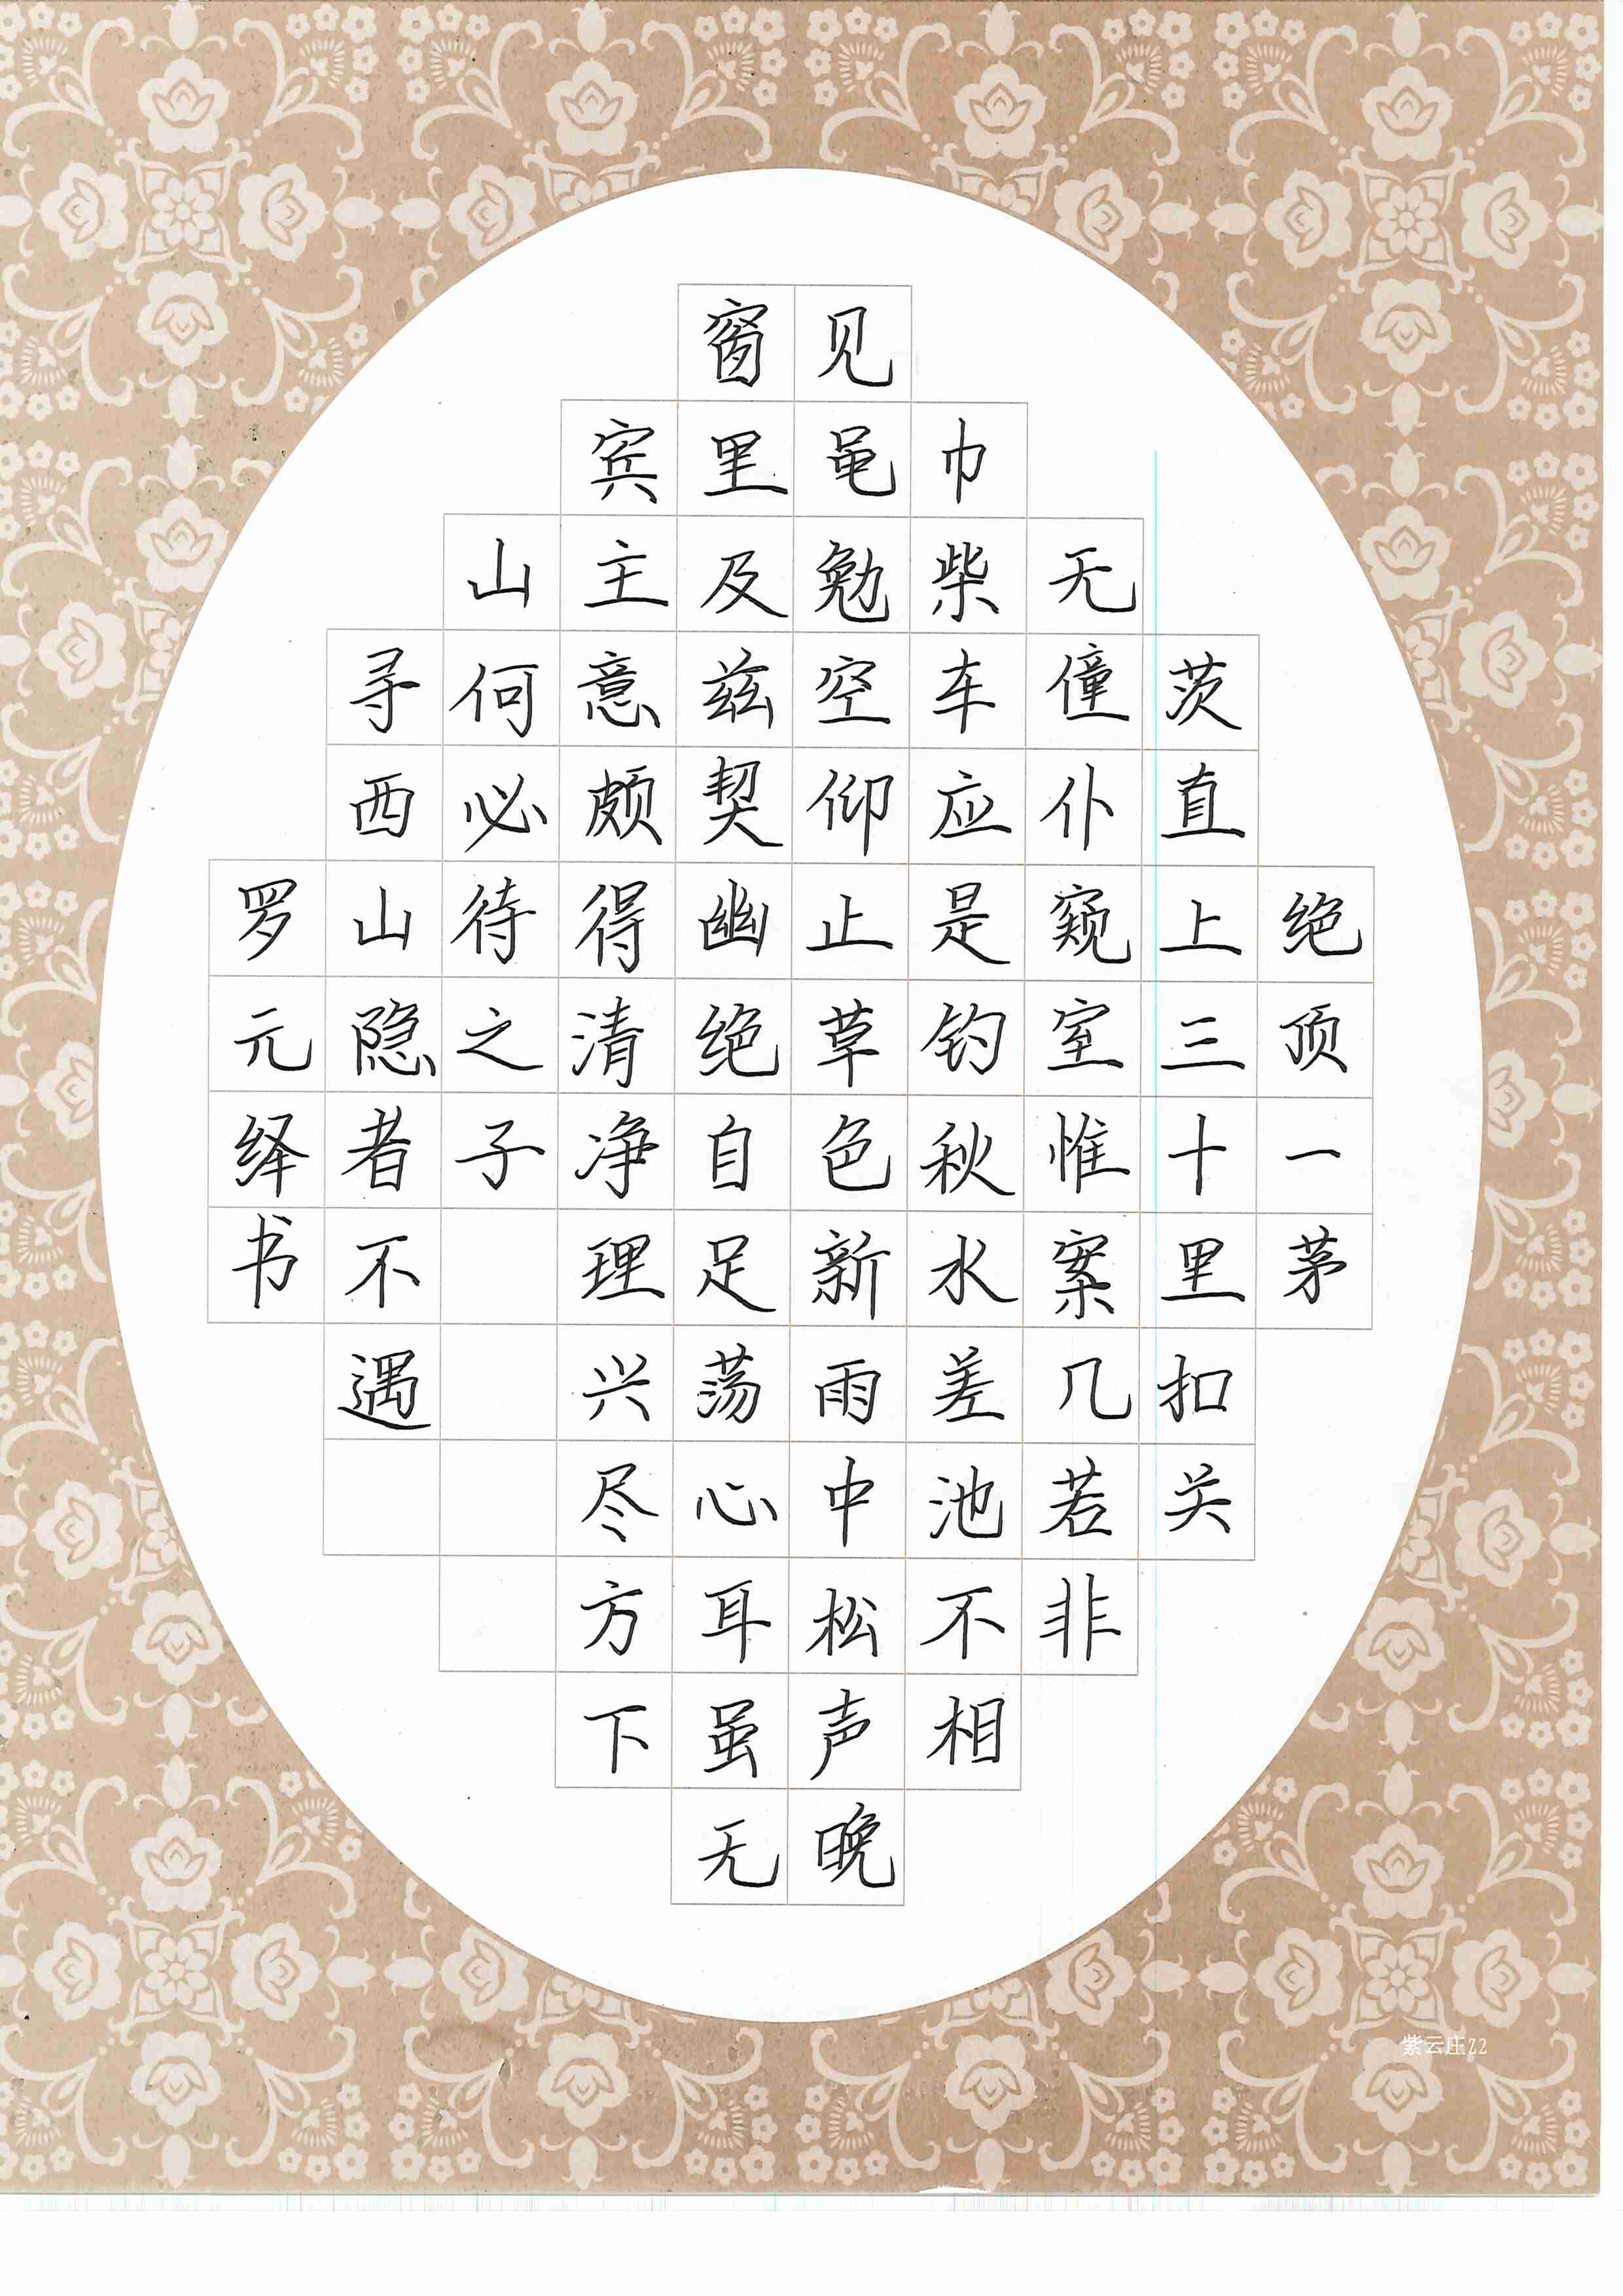 绝顶一茅
茨直上三十里扣关
无僮仆窥室惟案几若非
巾柴车应是钓秋水差池不相
见黾勉空仰止草色新雨中松声晚
窗里及兹契幽绝自足荡心耳虽无
宾主意颇得清净理兴尽方下
山何必待之子
寻西山隐者不遇
罗元绎书
紫云庄Z2